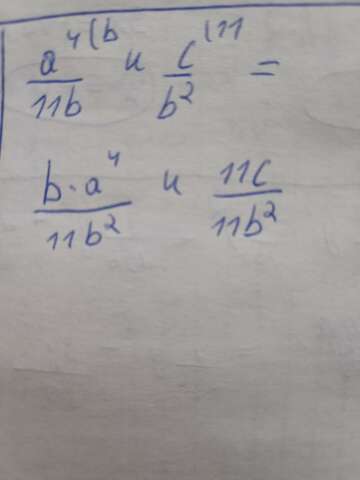 a⁴⁽ᵇ/11b и c⁽¹¹/b² =
b·a⁴/11b² и 11c/11b²